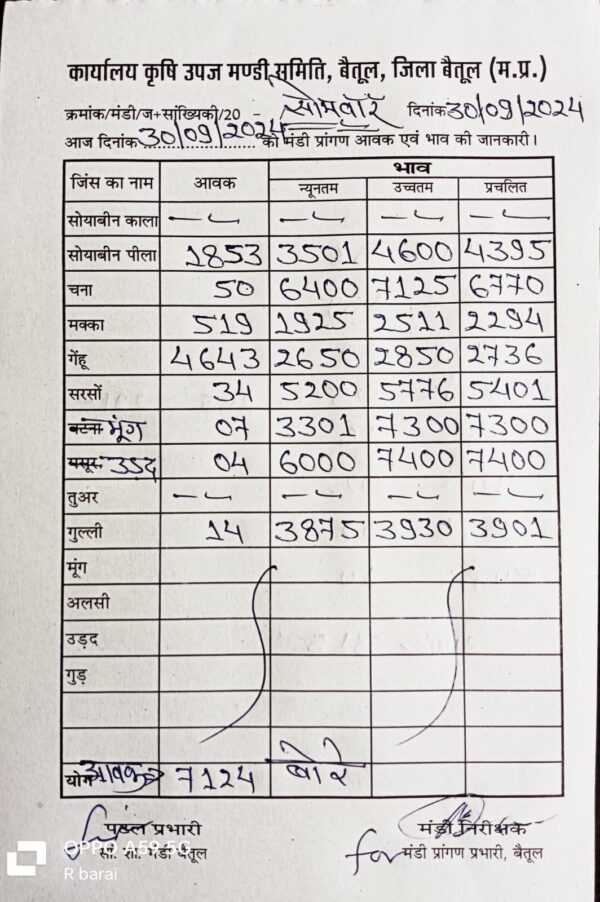 कार्यालय कृषि उपज मण्डी समिति, बैतूल, जिला बैतूल (म.प्र.)
क्रमांक/मंडी/ज+सांख्यिकी/20 - सोमवार दिनांक 30/09/2024
आज दिनांक 30/09/2024 को मंडी प्रांगण आवक एवं भाव की जानकारी।
जिंस का नाम आवक भाव
न्यूनतम उच्चतम प्रचलित
सोयाबीन काला -- -- -- --
सोयाबीन पीला 1853 3501 4600 4395
चना 50 6400 7125 6770
मक्का 519 1925 2511 2294
गेंहू 4643 2650 2850 2736
सरसों 34 5200 5776 5401
बटना मूंग 07 3301 7300 7300
मसूर उड़द 04 6000 7400 7400
तुअर -- -- -- --
गुल्ली 14 3875 3930 3901
मूंग
अलसी
उड़द
गुड़
योग आवक 7124 बोरे
पटल प्रभारी मंडी निरीक्षक
सां. शा. मंडी बैतूल for मंडी प्रांगण प्रभारी, बैतूल
OPPO A59 5G
R barai